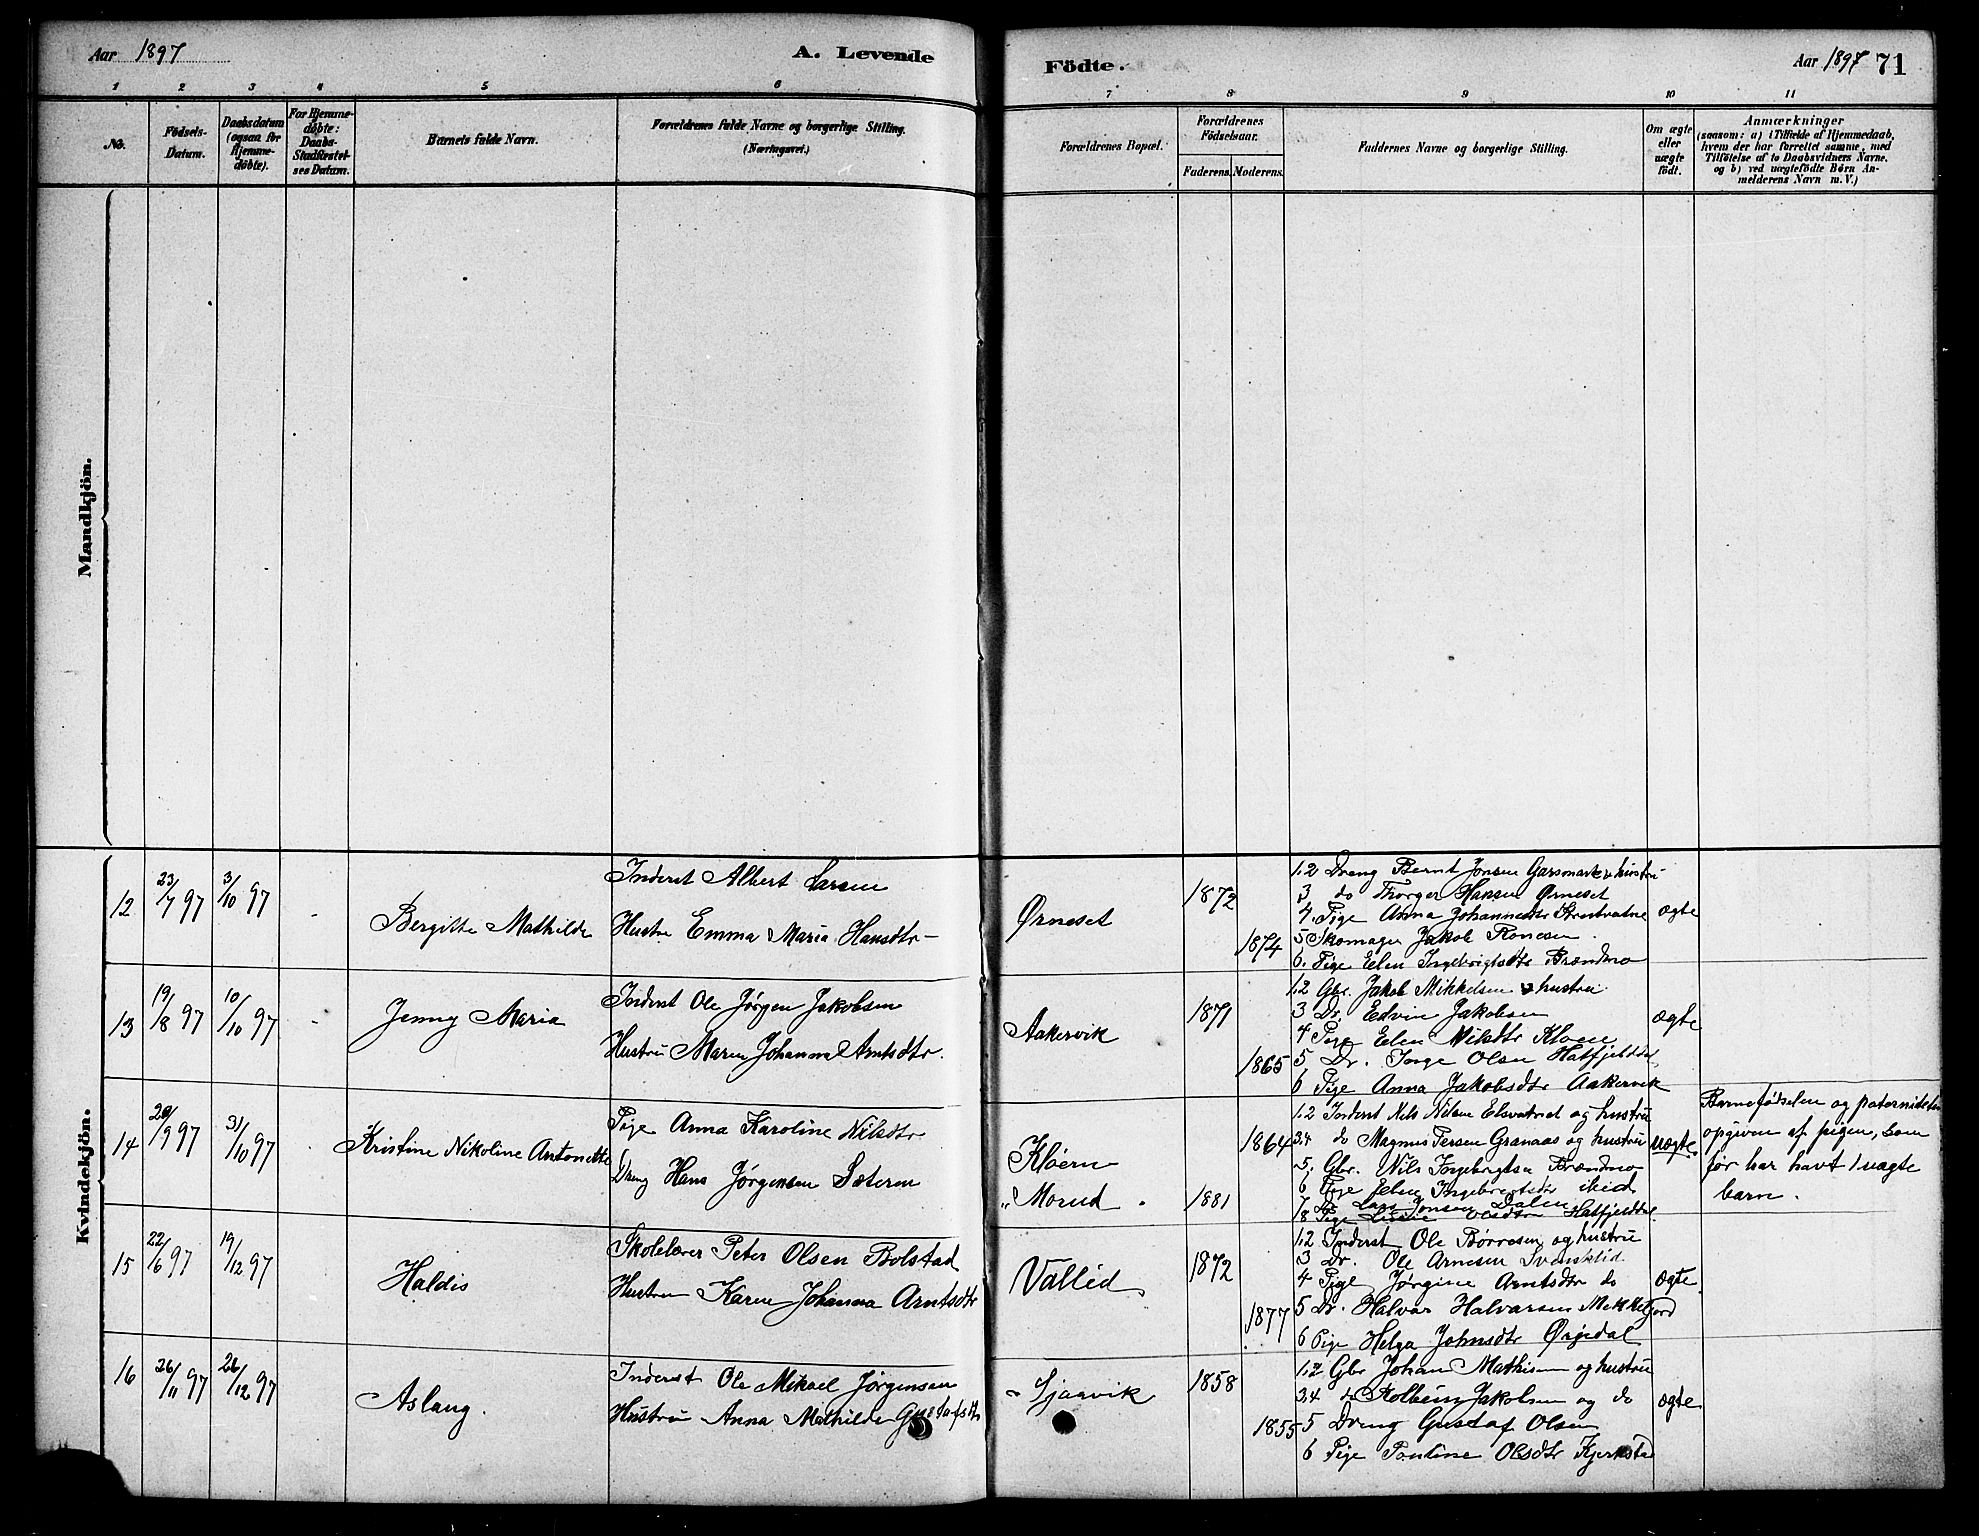 Aar 1897
A. Levende
Födte.
Aar 1897 71
1 2 3 4 5 6 7 8 9 10 11
No.
Födsels-
Datum.
Daabsdatum
(ogsaa for
Hjemme-
döbte).
For Hjemme-
döbte:
Daabs-
Stadfæstel-
ses Datum.
Barnets fulde Navn.
Forældrenes fulde Navne og borgerlige Stilling.
(Næringsvei.)
Forældrenes Bopæl.
Forældrenes
Födselsaar.
Faderens. Moderens.
Faddernes Navne og borgerlige Stilling.
Om ægte
eller
uægte
födt.
Anmærkninger
(saasom: a) i Tilfælde af Hjemmedaab,
hvem der har forrettet samme, med
Tilföielse af to Daabsvidners Navne,
og b) ved uægtefödte Börn An-
melderens Navn m. V.)
Mandkjön.
Kvindekjön.
12 23/7 97 3/10 97 -
Bergitte Mathilde
Inderst Albert Larsen
Hustru Emma Maria Hansdtr -
Ørneset
1872
1874
1.2 Dreng Bernt Jonsen Garsmark & hustru
3 do Thorger Hansen Ørneset
4. Pige Anna Johannesdtr
5 Skomager Jakob
6. Pige Elen Ingebrigtsdtr Brændmo
ægte
13 19/8 97 10/10 97 -
Jenny Maria
Inderst Ole Jørgen Jakobsen
Hustru Maren Johanna Arntsdtr.
Aakervik
1871
1865
1.2 Gbr. Jakob Mikkelsen & hustru
3 Dr. Edvin Jakobsen
4 Pige Elen Nilsdtr Kløen
5 Dr. Inge Olsen Hatfjelddal
6 Pige Anna Jakobsdtr Aakervik
ægte
14 20/9 97 31/10 97
Kristine Nikoline Antonette
Pige Anna Karoline Nilsdtr
Dreng Hans Jørgensen Sæteren
Kløern
" Morud.
1864
1881
1.2 Inderst Nils Nilsen Elsvatnet og hustru
3.4 do Magnus Persen Granaas og hustru
5. Gbr. Nils Ingebrigtsen Brændmo
6 Pige Elen Ingebrigtsdtr ibid
7 Dr Lars Jonsen Dalen
8 Pige Lusie Olsdtr Hatfjelddal
uægte
Barnefødselen og paterniteten
opgiven af pigen, som
før har havt 1 uægte
barn.
15 22/6 97 19/12 97
Haldis
Skolelærer Peter Olsen Bolstad
Hustru Karen Johanna Arntsdtr
Vallid
1872
1877
1.2 Inderst Ole Børresen og hustru
3 Dr. Ole Arnesen Svensklid
4 Pige Jørgine Arntsdtr do
5 Dr. Halvar Halvarsen Mikkeljord
6 Pige Helga Johnsdtr Ørjedal
ægte
16 26/11 97 26/12 97
Aslaug.
Inderst Ole Mikael Jørgensen
Hustru Anna Mathilde Gustafsdtr
Sjaavik
1858
1855
1.2 Gbr Johan Mathisen og hustru
3.4 do Kolbein Jakobsen og do
5 Dreng Gustaf Olsen
6 Pige Pauline Olsdtr Kjerkstad
ægte